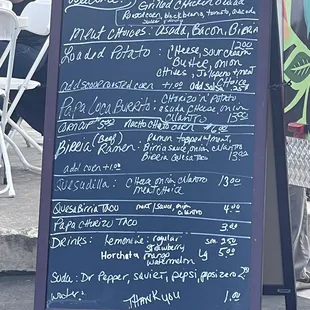 Grilled Chicken Salad
Roasted corn, black beans, tomato, avocado
Meat choices: Asada, Bacon, Birria
Loaded Potato: Cheese, sour cream 12.00
Butter, onion
chives, Jalapeno + meat
choice
add sour roasted corn +1.00 add salsa .25
Papa Loca Burrito: Chorizo 'n' Potato
asada cheese onion
cilantro 13.00
5.00 Nacho Cheto corn $6.00
Birria (beef) Ramen: Ramen topped w/ meat,
Birria sauce, onion cilantro
Birria Quesa Taco 13.00
add corn +1.00
Quesadilla: Cheese onion cilantro 13.00
meat choice
QuesaBirria Taco meat, sauce, onion 4.00
cilantro
Papa Chorizo Taco 3.00
Drinks: Lemonine: regular sm 2.50
Strawberry
Horchata mango Lg 5.00
watermelon
Soda: Dr Pepper, pepsi, pepsi zero 2.00
Water: 1.00
Thank you